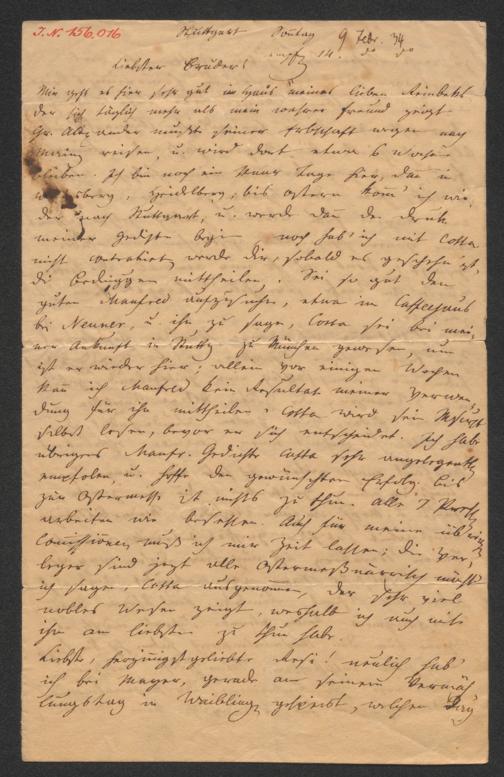 I.N. 156,016
Stuttgart Sontag 9 Febr. 34
empf. 14. do do
Liebster Bruder!
Mir geht es hier sehr gut im Haus meines lieben Reinbeks
der sich täglich mehr als mein wahrer Freund zeigt
Gr. Alexander mußte seiner Erbschaft wegen nach
reisen, u. wird dort etwa 6 Wochen
bleiben. Ich bin noch ein Paar Tage hier, dan in
Heidelberg, bis Ostern kom' ich wie,
der nach Stuttgart, u. werde dan den Druk
meiner Gedichte noch hab' ich mit Cotta
nicht contrahiert werde dir, sobald es geschehn ist,
die mittheilen. Sei so gut den
guten Manfred aufzusuchen, etwa im Caffeehaus
bei Neuner, u. ihm zu sagen, Cotta sei bei mei,
ner Ankunft in Stuttg. zu München gewesen, nun
ist er wieder hier; allein vor einigen Wochen
kan ich Manfred kein Resultat meiner Verwen,
dung für ihn mittheilen. Cotta wird sein Mscrpt
selbst lesen, bevor er sich entscheidet. Ich habe
übrigens Manfr. Gedichte Cotta sehr angelegentl.
empfolen, u. hoffe den gewünschten Erfolg. Bis
zur Ostermesse ist nichts zu thun. Alle
arbeiten wie besessen. Auch für meine übrigen
Comissionen muß ich mir Zeit lassen; die Ver,
leger sind jezt alle Ostermeßnärrisch möcht'
ich sagen, Cotta ausgenomen, der sehr viel
nobles Wesen zeigt, weshalb ich auch mit
ihm am liebsten zu thun habe.
Liebste, herzinnigst geliebte Resi! neulich hab'
ich bei Mayer, gerade an seinem Vermäh
lungstag in Waiblingen gespeist, welchen